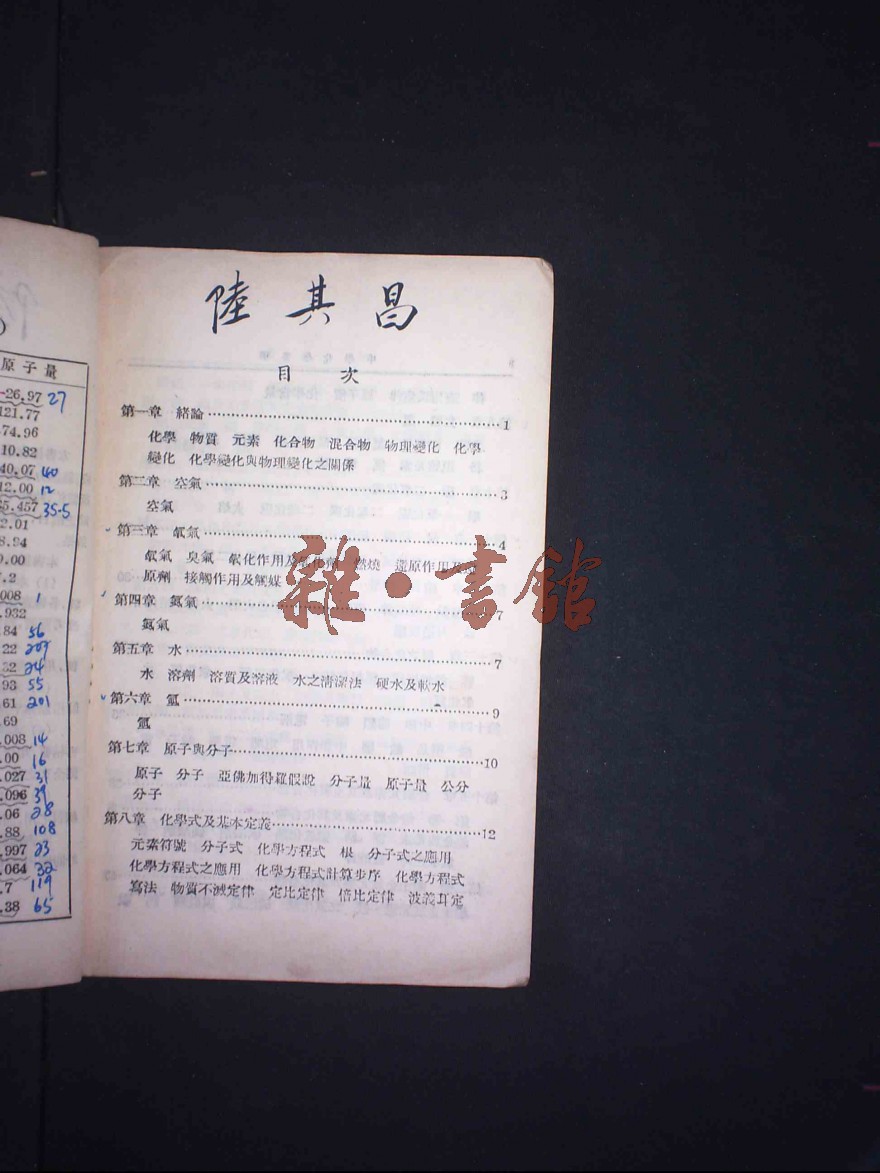 原子量
26.97 27
121.77
74.96
10.82
40.07 40
12.00 12
35.457 35.5
2.01
8.94
9.00
7.2
008 1
.932
.84 56
22 207
.32 24
93 55
.61 201
.69
.008 14
.00 16
.027 31
.096 39
.06 28
.88 108
.997 23
.064 32
.7 119
.38 65
陸其昌
目次
第一章 緒論 1
化學 物質 元素 化合物 混合物 物理變化 化學
變化 化學變化與物理變化之關係
第二章 空氣 3
空氣
第三章 氧氣 4
氧氣 臭氣 氧化作用及氧化劑 燃燒 還原作用及還
原劑 接觸作用及觸媒
第四章 氮氣 7
氮氣
第五章 水 7
水 溶劑 溶質及溶液 水之清潔法 硬水及軟水
第六章 氫 9
氫
第七章 原子與分子 10
原子 分子 亞佛加得羅假說 分子量 原子量 公分
分子
第八章 化學式及基本定義 12
元素符號 分子式 化學方程式 根 分子式之應用
化學方程式之應用 化學方程式計算步序 化學方程式
寫法 物質不滅定律 定比定律 倍比定律 波義耳定
雜·書館